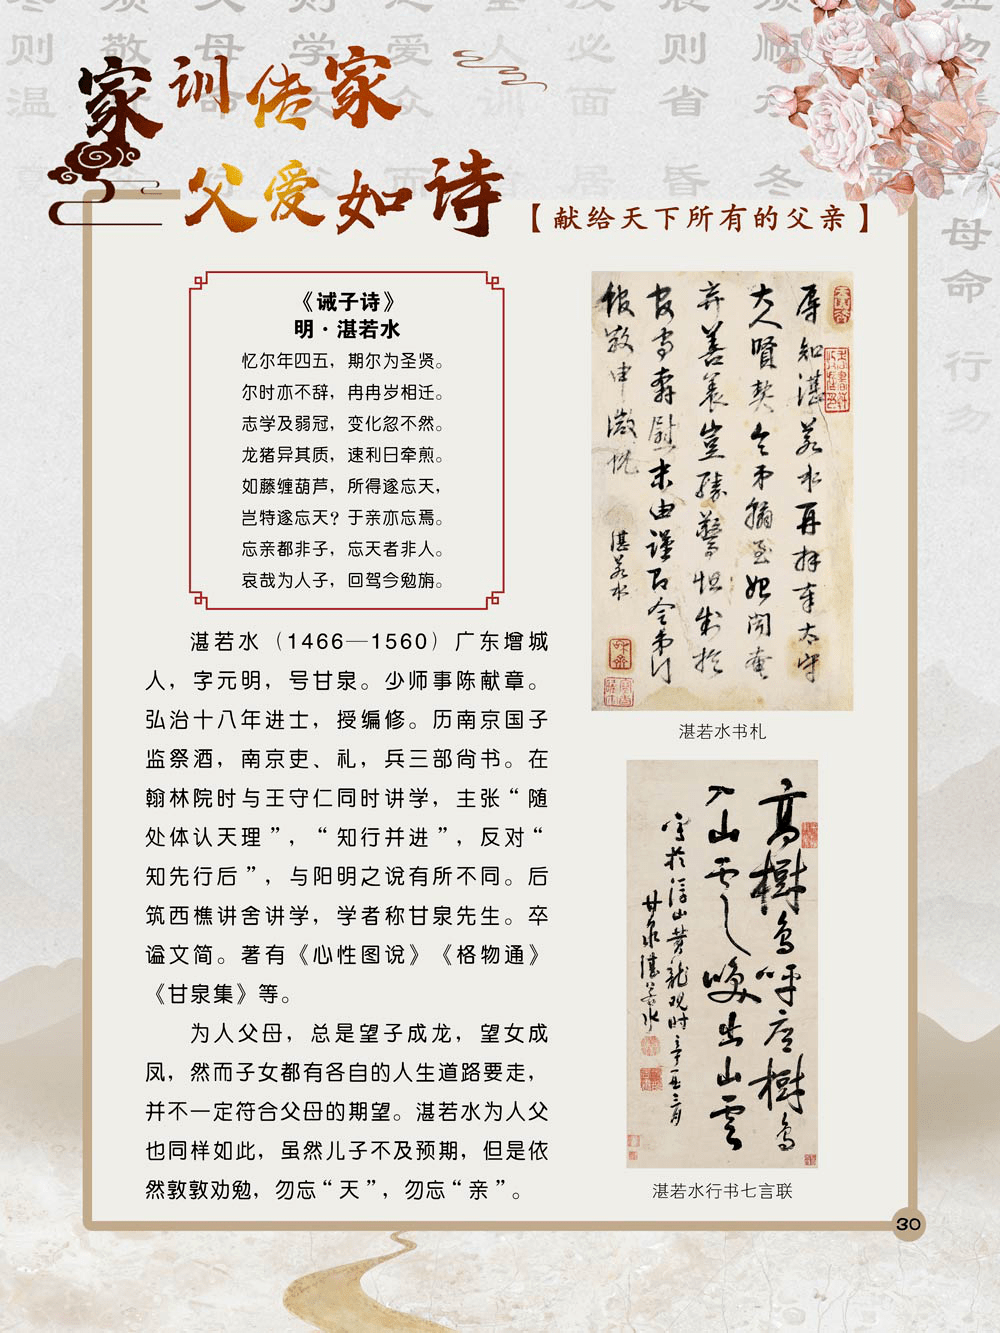 家训传家
父爱如诗
【献给天下所有的父亲】
《诫子诗》
明·湛若水
忆尔年四五，期尔为圣贤。
尔时亦不辞，冉冉岁相迁。
志学及弱冠，变化忽不然。
龙猪异其质，速利日牵煎。
如藤缠葫芦，所得遂忘天，
岂特遂忘天？于亲亦忘焉。
忘亲都非子，忘天者非人。
哀哉为人子，回驾今勉旃。
湛若水（1466—1560）广东增城
人，字元明，号甘泉。少师事陈献章。
弘治十八年进士，授编修。历南京国子
监祭酒，南京吏、礼，兵三部尚书。在
翰林院时与王守仁同时讲学，主张“随
处体认天理”，“知行并进”，反对“
知先行后”，与阳明之说有所不同。后
筑西樵讲舍讲学，学者称甘泉先生。卒
谥文简。著有《心性图说》《格物通》
《甘泉集》等。
为人父母，总是望子成龙，望女成
凤，然而子女都有各自的人生道路要走，
并不一定符合父母的期望。湛若水为人父
也同样如此，虽然儿子不及预期，但是依
然敦敦劝勉，勿忘“天”，勿忘“亲”。
湛若水再拜奉太守
大人贤契
湛若水
湛若水书札
高树鸟呼高树鸟
入山云唤出山云
甘泉湛若水
湛若水行书七言联
母命
行勿
30